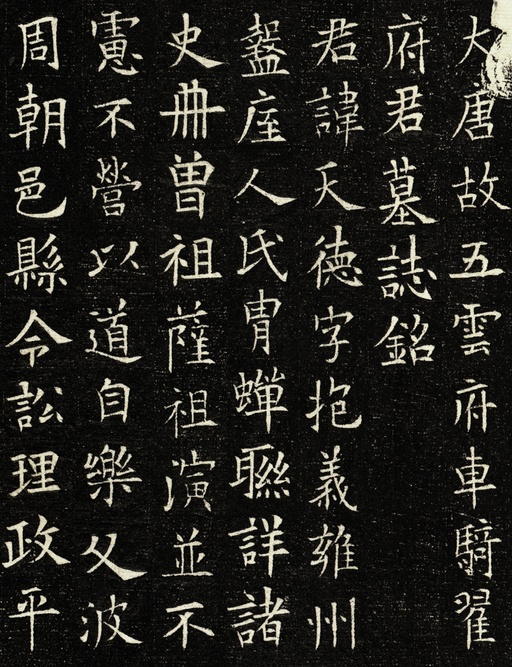 大唐故五雲府車騎翟
府君墓誌銘
君諱天徳字抱義雍州
盩庢人氏胄蟬聯詳諸
史冊曽祖薩祖演並不
慮不營以道自樂父波
周朝邑縣令訟理政平